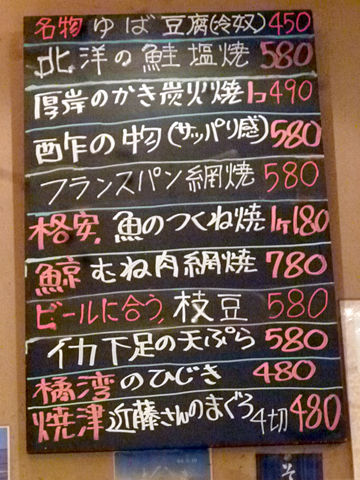 名物 ゆば豆腐(冷奴)450
北洋の鮭塩焼 580
厚岸のかき炭火焼1コ490
酢の物(サッパリ感)580
フランスパン網焼 580
格安、魚のつくね焼1ヶ180
鯨むね肉網焼 780
ビールに合う、枝豆 580
イカ下足の天ぷら 580
橘湾のひじき 480
焼津近藤さんのまぐろ4切480